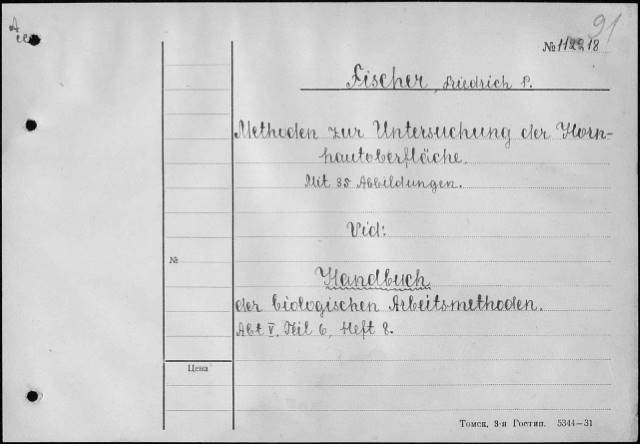 91
№ 112218
Fischer, Friedrich P.
Methoden zur Untersuchung der Horn-
hautoberfläche.
Mit 35 Abbildungen.
Vid:
№
Handbuch
der biologischen Arbeitsmethoden.
Abt V, Teil 6, Heft 8.
Цена
Томск, 3-я Гостип. 5344—31